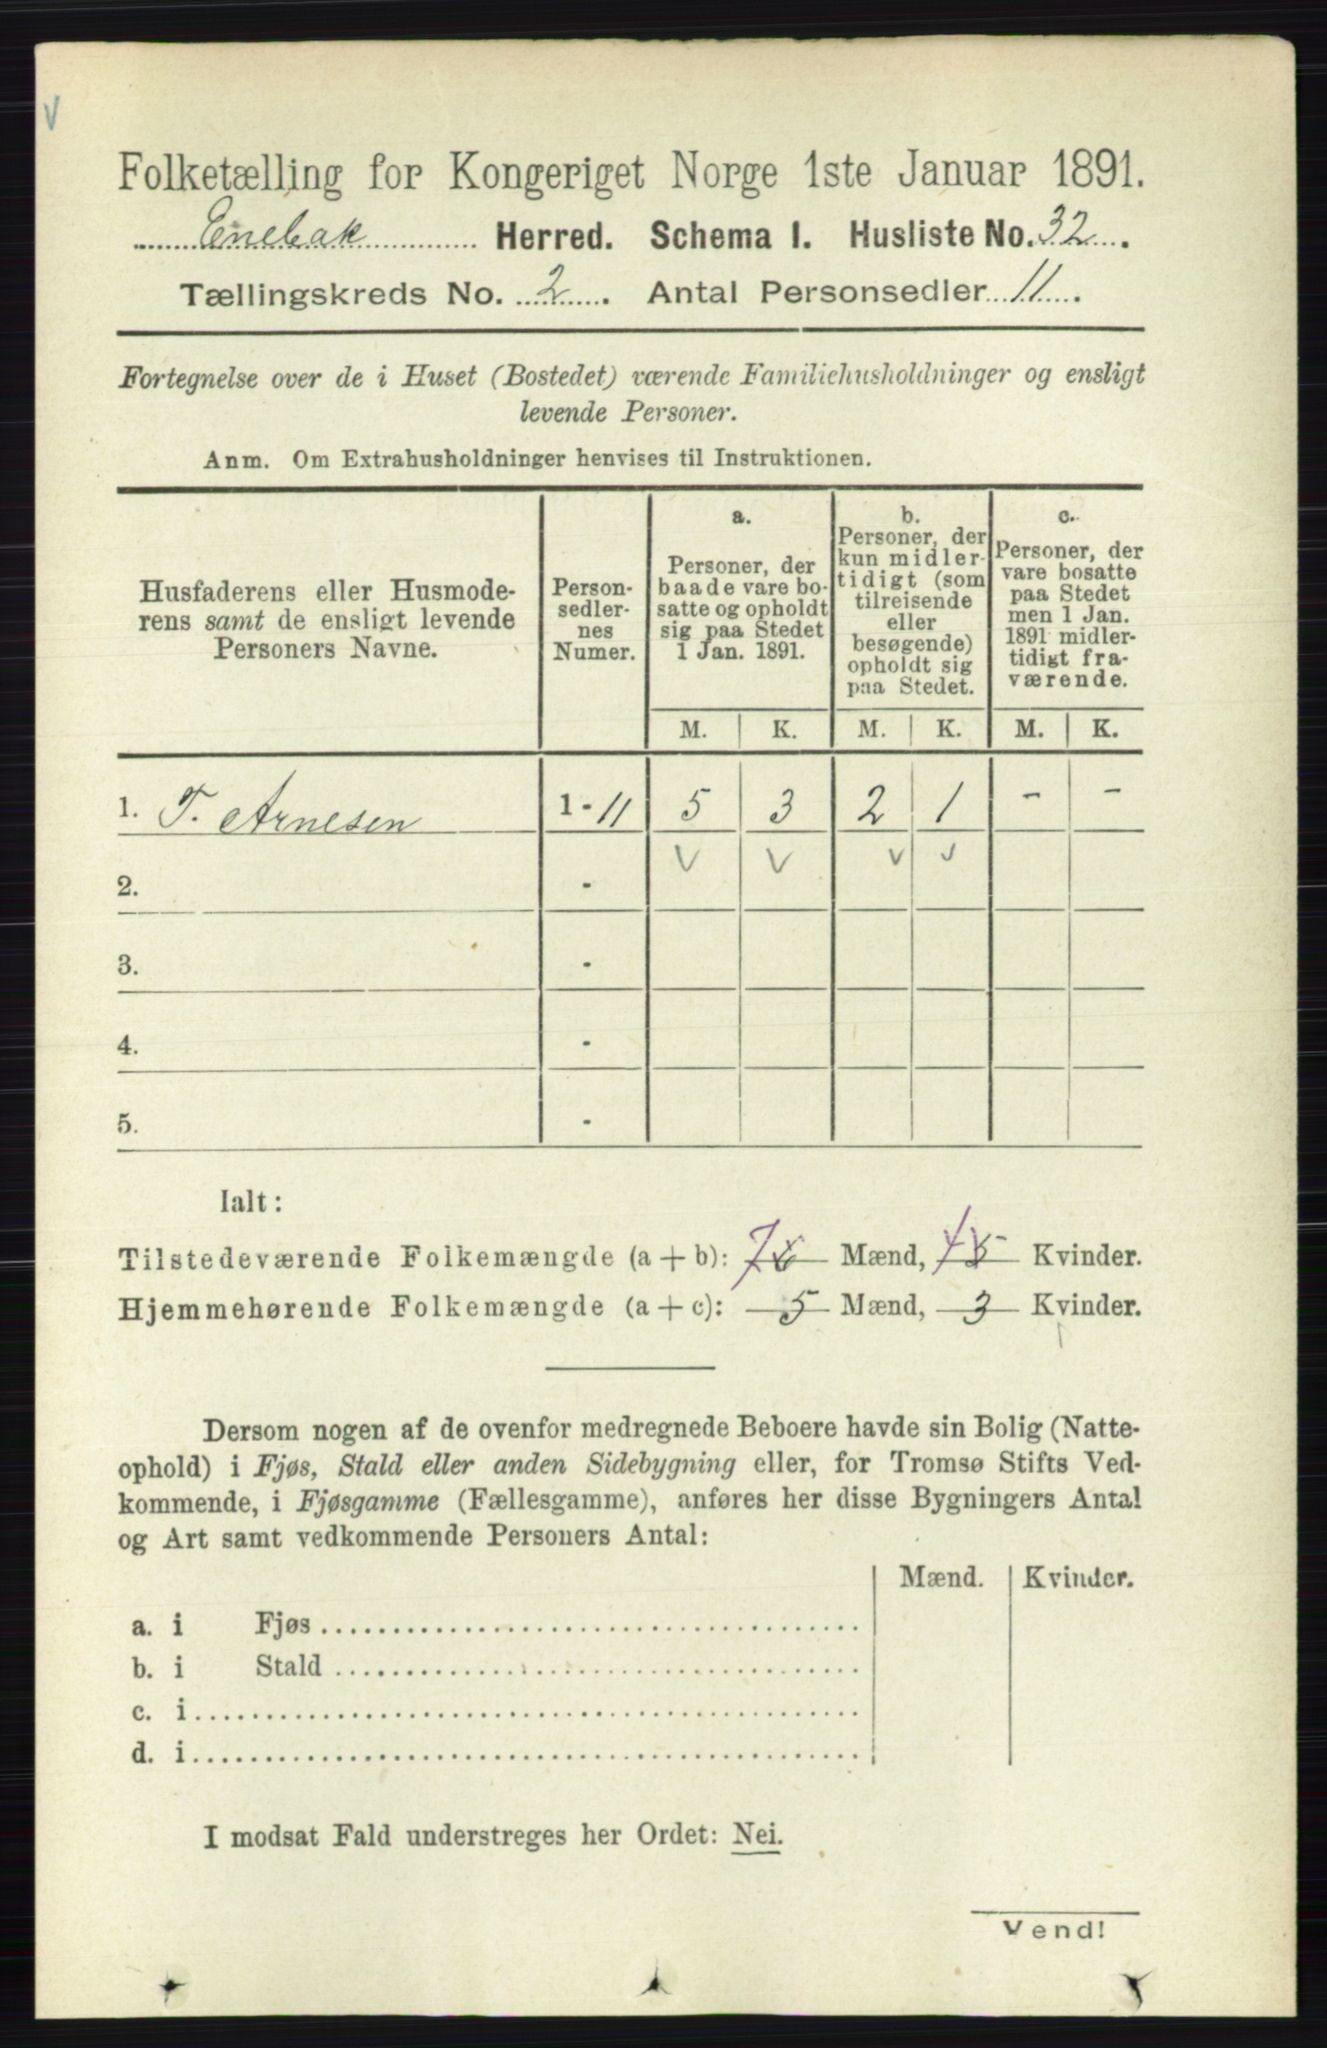 V
Folketælling for Kongeriget Norge 1ste Januar 1891.
Enebak Herred. Schema I. Husliste No. 32.
Tællingskreds No. 2. Antal Personsedler 11.
Fortegnelse over de i Huset (Bostedet) værende Familiehusholdninger og ensligt
levende Personer.
Anm. Om Extrahusholdninger henvises til Instruktionen.
Husfaderens eller Husmode-
rens samt de ensligt levende
Personers Navne.
Person-
sedler-
nes
Numer.
a.
Personer, der
baade vare bo-
satte og opholdt
sig paa Stedet
1 Jan. 1891.
b.
Personer, der
kun midler-
tidigt (som
tilreisende
eller
besøgende)
opholdt sig
paa Stedet.
c.
Personer, der
vare bosatte
paa Stedet
men 1 Jan.
1891 midler-
tidigt fra-
værende.
M. K. M. K. M. K.
1. T. Arnesen 1 - 11 5 3 2 1 - -
V V V V
2. -
3. -
4. -
5. -
Ialt:
Tilstedeværende Folkemængde (a + b): 7 Mænd, 4 5 Kvinder.
Hjemmehørende Folkemængde (a + c): 5 Mænd, 3 Kvinder.
Dersom nogen af de ovenfor medregnede Beboere havde sin Bolig (Natte-
ophold) i Fjøs, Stald eller anden Sidebygning eller, for Tromsø Stifts Ved-
kommende, i Fjøsgamme (Fællesgamme), anføres her disse Bygningers Antal
og Art samt vedkommende Personers Antal:
Mænd. Kvinder.
a. i Fjøs
b. i Stald
c. i
d. i
I modsat Fald understreges her Ordet: Nei.
Vend!